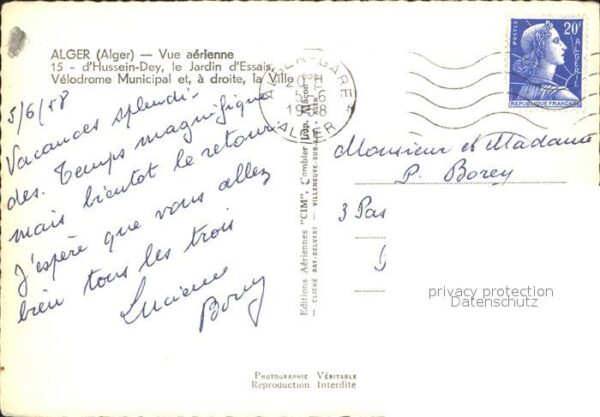 ALGER (Alger) — Vue aérienne
15 - d'Hussein-Dey, le Jardin d'Essais,
Vélodrome Municipal et, à droite, la Ville
5/6/58
Vacances splendi-
des. Temps magnifique
mais bientôt le retour
J'espère que vous allez
bien tous les trois
Lucienne
Borey
Editions Aériennes "CIM", Combier Imp. Macon
ALGER-GARE
1958
ALGER
POSTES
20F
ALGERIE
REPUBLIQUE FRANÇAISE
Monsieur et Madame
P. Borey
3 Pas
privacy protection
Datenschutz
PHOTOGRAPHIE VÉRITABLE
Reproduction Interdite